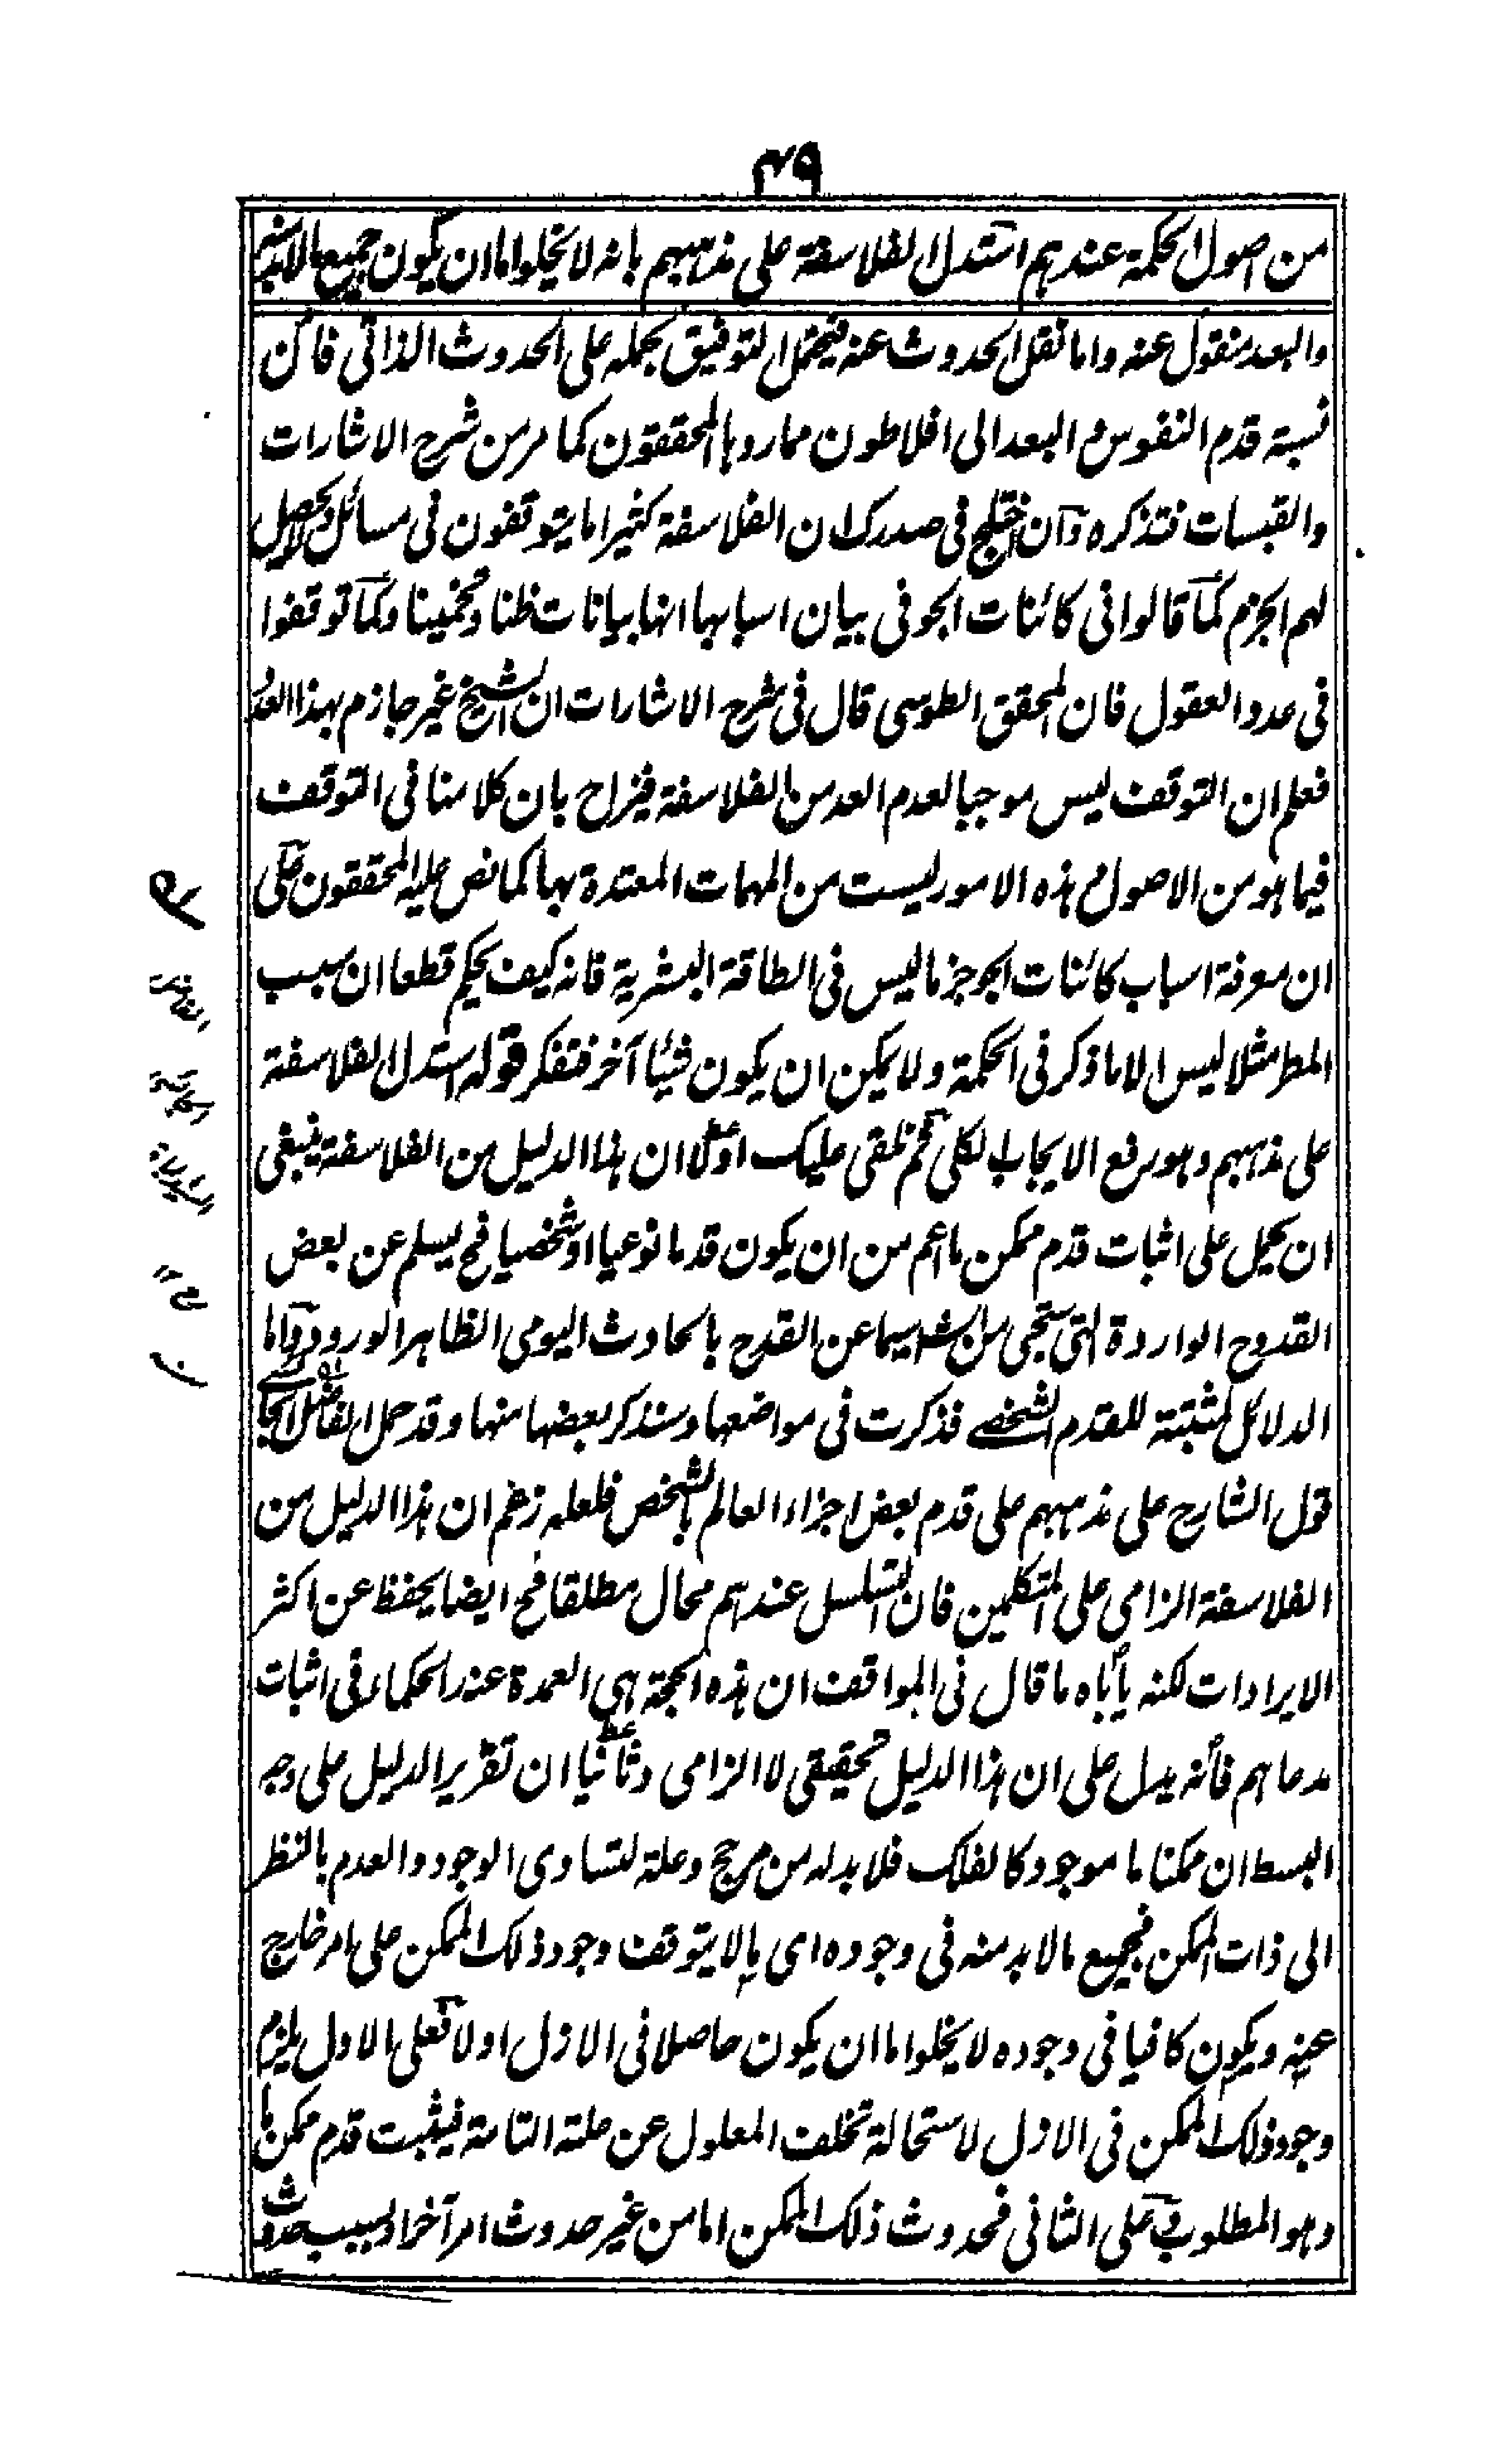 ۴۹
من اصول الحكمة عندهم استدل الفلاسفة على مذهبهم بانه لا يخلوا اما ان يكون جميع مالابد
والبعد منقول عنه واما نقل الحدوث عنه فيحتمل التوفيق بحمله على الحدوث الذاتى فان
نسبة قدم النفوس و البعد الى افلاطون مما رواها المحققون كما مر من شرح الاشارات
والقبسات فتذكره وان اختلج فى صدرك ان الفلاسفة كثيرا ما يتوقفون فى مسائل ولا يحصل
لهم الجزم كما قالوا فى كائنات الجو فى بيان اسبابها انها بيانات ظنا وتخمينا وكما توقفوا
فى عدد العقول فان المحقق الطوسى قال فى شرح الاشارات ان الشيخ غير جازم بهذا العدد
فعلم ان التوقف ليس موجبا لعدم العد من الفلاسفة فيزاح بان كلامنا فى التوقف
فيما هو من الاصول و هذه الامور ليست من المهمات المعتدة بها كما نص عليه المحققون على
ان معرفة اسباب كائنات الجو جزما ليس فى الطاقة البشرية فانه كيف يحكم قطعا ان سبب
المطر مثلا ليس الا ما ذكر فى الحكمة ولا يمكن ان يكون شيئا آخر فتفكر قوله استدل الفلاسفة
على مذهبهم وهو رفع الايجاب الكلى ثم نلقى عليك اولا ان هذا الدليل من الفلاسفة ينبغى
ان يحمل على اثبات قدم ممكن ما اعم من ان يكون قدما نوعيا او شخصيا فح يسلم عن بعض
القدوح الواردة التى ستجئ من الشه سيما عن القدح بالحادث اليومى الظاهر الورود واما
الدلائل المثبتة للقدم الشخصى فذكرت فى مواضعها وسنذكر بعضها منها وقد حمل الفاضل
قول الشارح على مذهبهم على قدم بعض اجزاء العالم بالشخص فلعله زعم ان هذا الدليل من
الفلاسفة الزامى على المتكلمين فان التسلسل عندهم محال مطلقا فح ايضا يحفظ عن اكثر
الايرادات لكنه يأباه ما قال فى المواقف ان هذه الحجة هى العمدة عند الحكماء فى اثبات
مدعاهم فانه يدل على ان هذا الدليل تحقيقى لا الزامى وثانيا ان تقرير الدليل على وجه
البسط ان ممكنا ما موجود كالفلك فلا بد له من مرجح وعلة لتساوى الوجود والعدم بالنظر
الى ذات الممكن فجميع مالا بد منه فى وجوده اى ما لا يتوقف وجود ذلك الممكن على امر خارج
عنه ويكون كافيا فى وجوده لا يخلوا اما ان يكون حاصلا فى الازل اولا فعلى الاول يلزم
وجود ذلك الممكن فى الازل لاستحالة تخلف المعلول عن علته التامة فيثبت قدم ممكن ما
وهو المطلوب وعلى الثانى فحدوث ذلك الممكن اما من غير حدوث امر آخر او بسبب حدوث